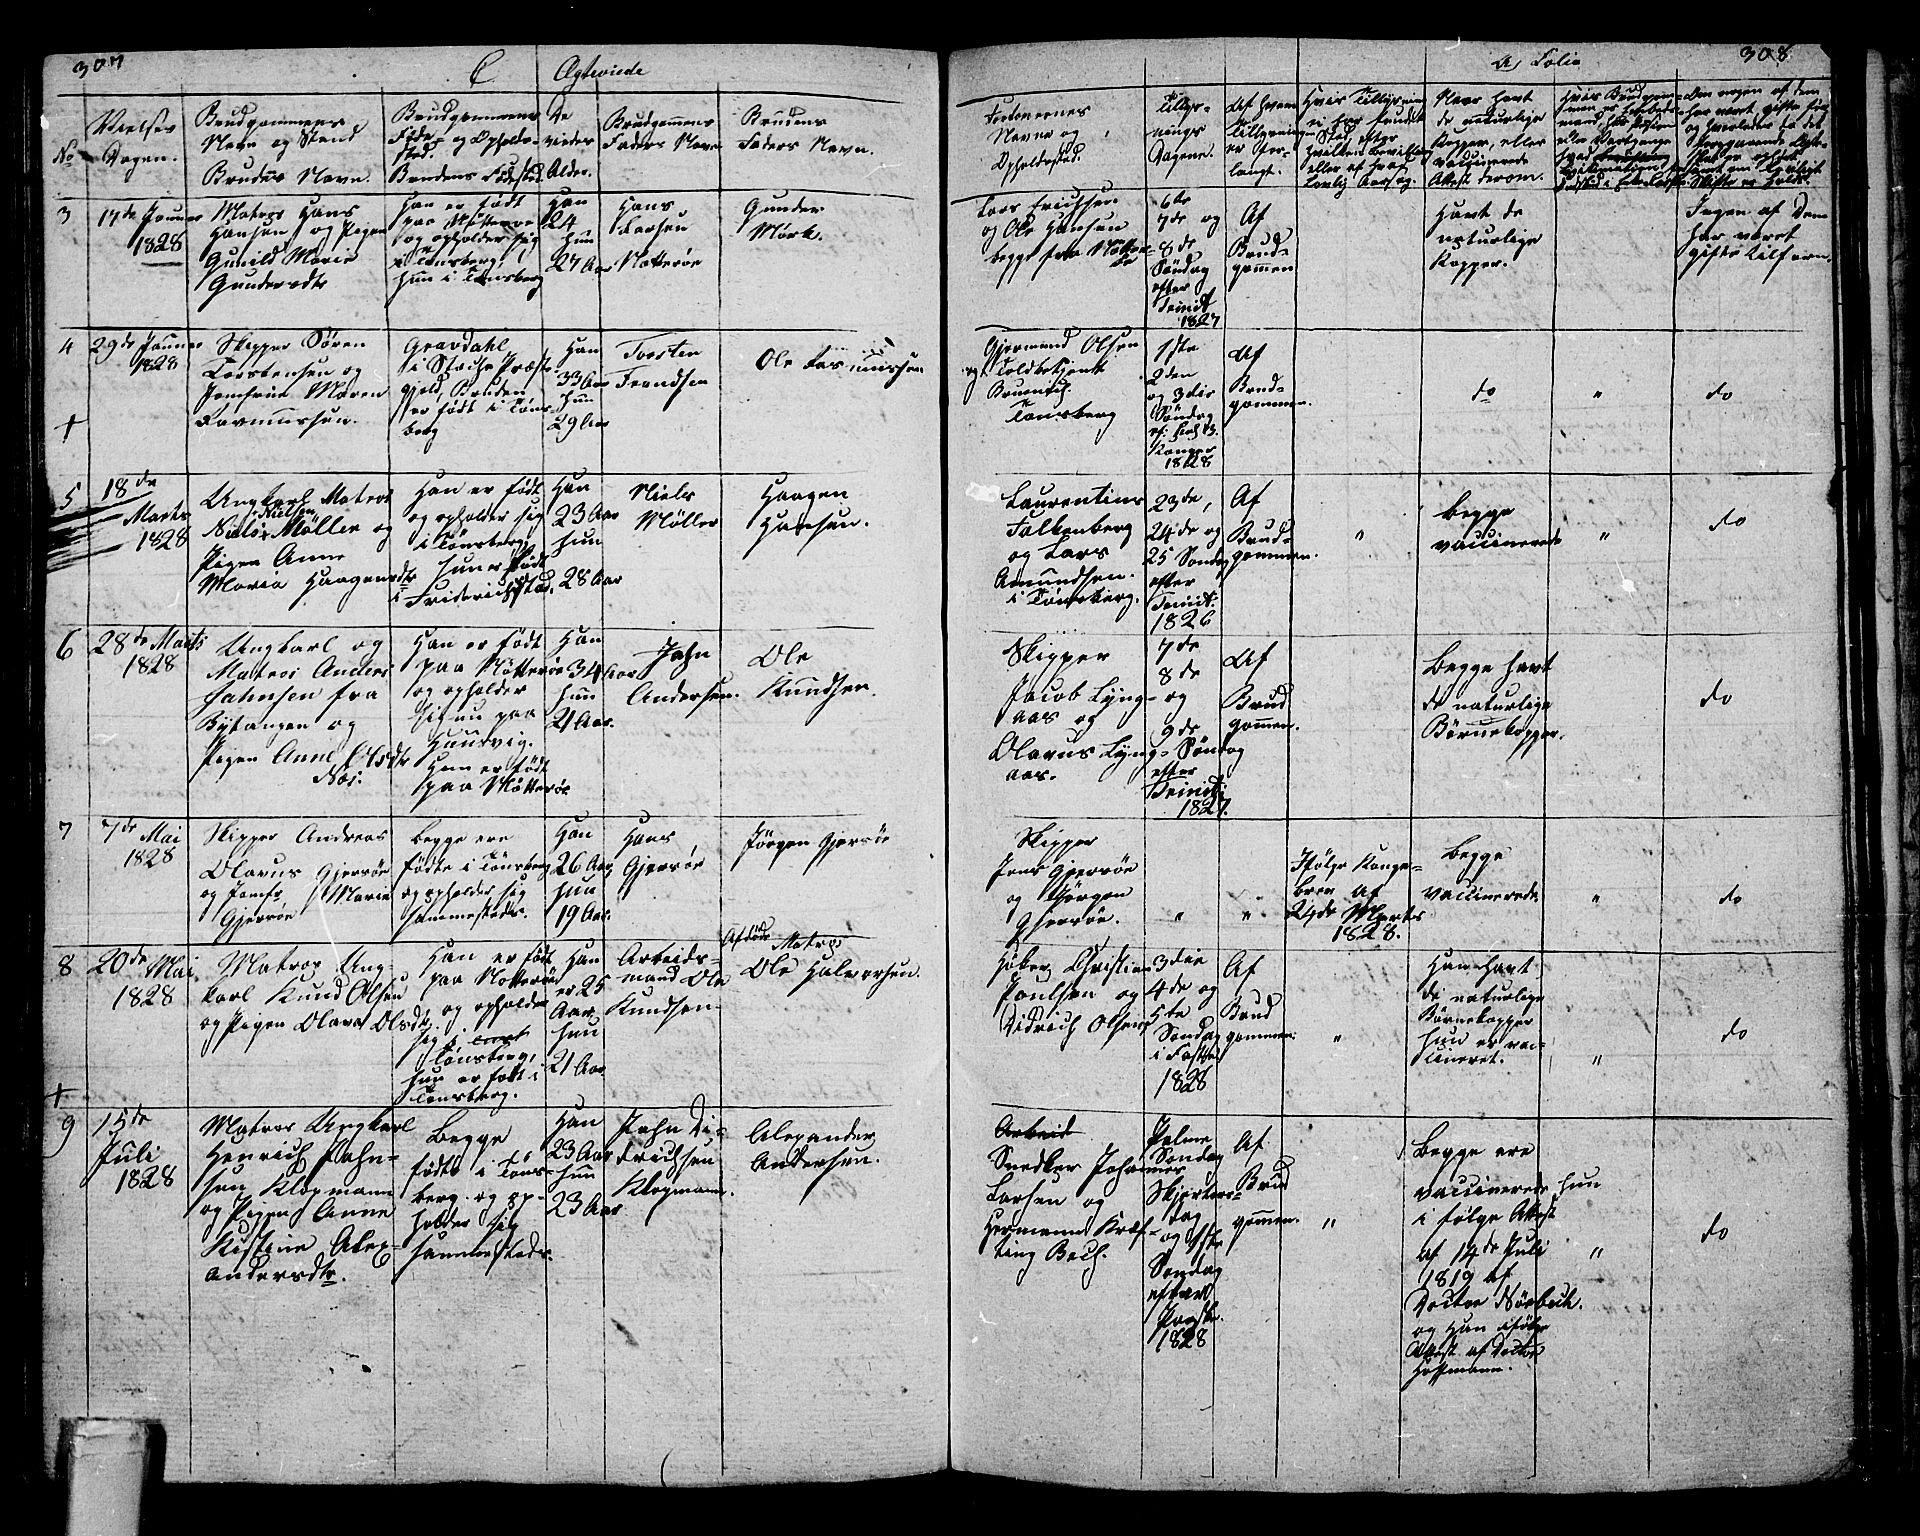 307
C
Ægteviede
No
Vielses
Dagen.
Brudgommens
Navn og Stand
Brudens Navn.
Brudgommens
Føde- og Opholds-
sted.
Brudens Fødested.
De
viedes
Alder.
Brudgommens
Faders Navn
Brudens
Faders Navn.
3
17de Januar
1828
Matros Hans
Hansen og Pigen
Gunild Marie
Gundersdtr
Han er født
paa Nøtterøe
og opholder sig
i Tønsberg,
hun i Tønsberg
Han
24
hun
27 Aar
Hans
Larsen
Nøtterøe
Gunder
Mørk.
4
29de Januar
1828
Skipper Søren
Torstensen og
Jomfrue Maren
Rasmussen.
Gravdahl
i Præste-
gjeld, Bruden
er født i Tøns-
berg
Han
33 Aar
hun
29 Aar
Torsten
Frandsen
Ole Rasmussen
5
18de
Marts
1828
Ungkarl Matros
Nielsen
Møller og
Pigen Anne
Maria Haagensdtr
Han er født
og opholder sig
i Tønsberg
hun er født
i Friderichstad.
Han
23 Aar
hun
28 Aar
Niels
Møller
Haagen
Hansen.
6
28de Marts
1828
Ungkarl og
Matros Anders
Jahnsen fra
Bytangen og
Pigen Anne Olsdtr
Næs.
Han er født
paa Nøtterøe
og opholder
sig nu paa
Hundvig.
Hun er født
paa Nøtterøe
Han
34 Aar
hun
21 Aar.
Jahn
Andersen.
Ole
Knudsen.
7
7de Mai
1828
Skipper Andreas
Olavus Gjersøe
og Jomfr Marie
Gjersøe
begge ere
fødte i Tønsberg
og opholder sig
sammesteds.
Han
26 Aar
hun
19 Aar.
Hans
Gjersøe
Jørgen Gjersøe
8
20de Mai
1828
Matros Ung-
karl Knud Olsen
og Pigen Olava Olsdtr
Han er født
paa Nøtterøe
og opholder
sig i
Tønsberg,
hun er født i
Tønsberg.
Han
er 25
Aar
hun
21 Aar
Arbeids-
mand Ole
Knudsen
Afdøde Matros
Ole Halvorsen.
9
15de
Juli
1828
Matros Ungkarl
Henrich Jahn-
sen Klopmann
og Pigen Anne
Kistine Alex-
andersdtr.
Begge
fødte i Tøns-
berg og op-
holder sig
sammesteds.
Han
23 Aar
hun
23 Aar
Jahn Di-
drichsen
Klopmann.
Alexander
Andersen.
308
a Folio
Forlovernes
Navne og
Opholdssted.
Tillys-
nings
Dagene.
Af hvem
Tillysningen
er for-
langt.
Hvis Tillysning
ei har fundet
Sted, efter
hvilken Bevilling
eller af hvad
lovlig Aarsag.
Have havt
de naturlige
Kopper, eller
vaccinerede
Attest derom.
Om nogen af dem
har været gifte før
Lars Erichsen
og Ole Hansen
begge fra Nøtter-
øe
6te
7de og
8de
Søndag
efter
Trinit
1827
Af
Brud-
gommen
Havt de
naturlige
Kopper.
Ingen af dem
har været
gifte tilforn.
Gjermund Olsen
og Toldbetjent
Tønsberg
1ste
2den
og 3die
Søndag
Konger
1828
Af
Brud-
gommen.
do
"
do
Laurentius
Falkenberg
og Lars
Amundsen.
i Tønsberg.
23de,
24de og
25 Søndag
efter
Trinit.
1826
Af
Brud-
gommen.
"
begge
vaccinerede
"
do
Skipper
Jacob Lyng-
aas og
Olavus Lyng-
aas.
7de
8de
og
9de
Søndag
efter
Trinit:
1827.
Af
Brud
gommen.
Begge havt
de naturlige
Børnekopper.
do
Skipper
Jens Gjersøe
og Jørgen
Gjersøe.
"
"
Ifølge Konge-
brev af
24de Marts
1828.
begge
vaccinerede
"
do
Christian
Poulsen og
Didrich Olsen
3die
4de og
5te
Søndag
i Faste
1828
Af
Brud
gommen.
"
Han havt
de naturlige
Børnekopper
hun er vac-
cineret.
"
do
Arbeid
Snedker Johannes
Larsen og
Hermann
Bech.
Palme
Søndag
Skjertors-
dag
og 1ste
Søndag
efter
Paaske.
1828
Af
Brud
gommen.
"
Begge ere
vaccinerede hun
i følge Attest
af 14de Juli
1819 af
Doctor Nørbech.
og Han ifølge
Attest af Doctor
Hoffmann.
"
do